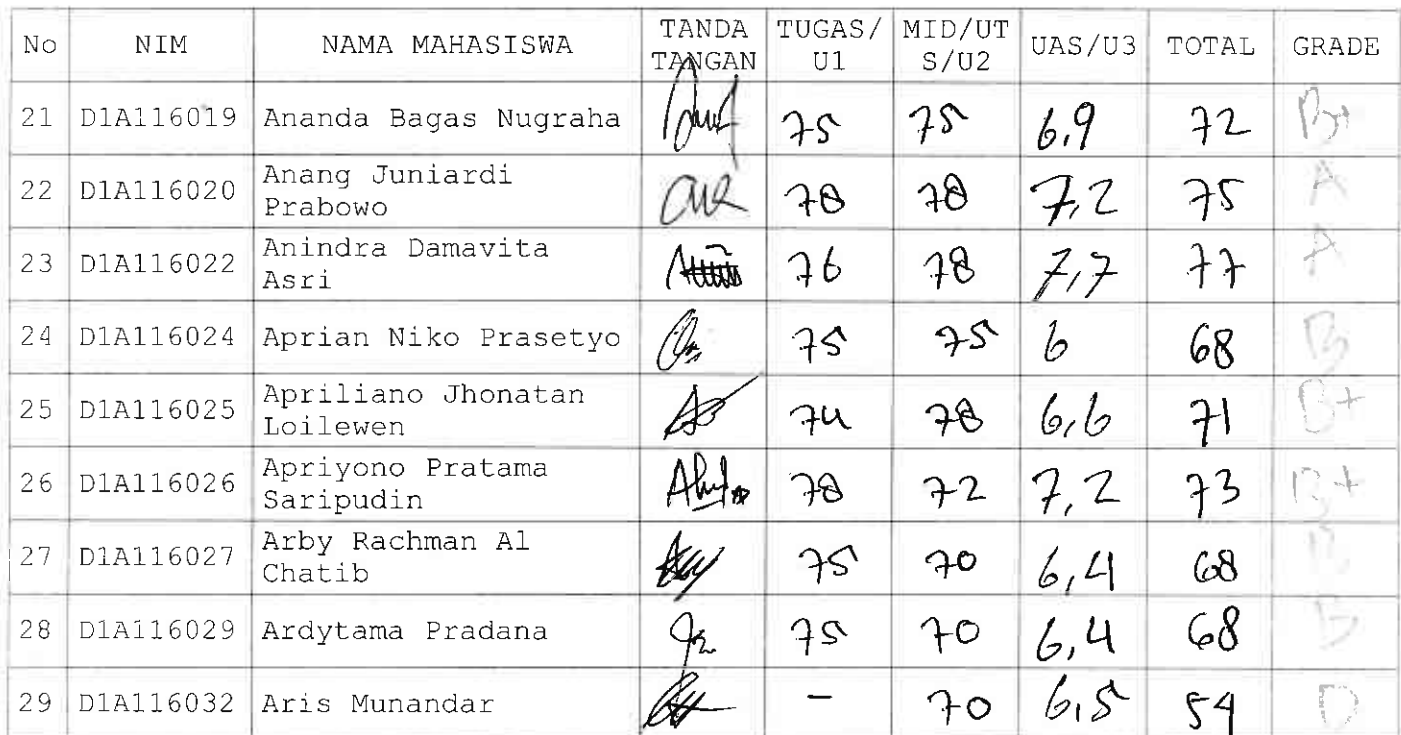 No NIM NAMA MAHASISWA TANDA TANGAN TUGAS/U1 MID/UTS/U2 UAS/U3 TOTAL GRADE
21 D1A116019 Ananda Bagas Nugraha 75 75 6,9 72 B+
22 D1A116020 Anang Juniardi Prabowo 78 78 7,2 75 A
23 D1A116022 Anindra Damavita Asri 76 78 7,7 77 A
24 D1A116024 Aprian Niko Prasetyo 75 75 6 68 B
25 D1A116025 Apriliano Jhonatan Loilewen 74 78 6,6 71 B+
26 D1A116026 Apriyono Pratama Saripudin 78 72 7,2 73 B+
27 D1A116027 Arby Rachman Al Chatib 75 70 6,4 68 B
28 D1A116029 Ardytama Pradana 75 70 6,4 68 B
29 D1A116032 Aris Munandar - 70 6,5 54 D